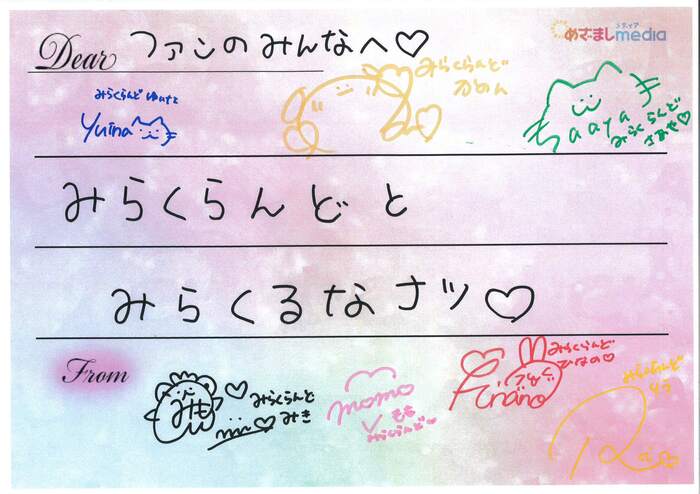 Dear ファンのみんなへ♡
めざましmedia
メディア
みらくらんど ゆいな
Yuina
みらくらんど
かのん
Saaya
みらくらんど
さあや♡
みらくらんどと
みらくるなナツ♡
From
みらくらんど
みき
momo
もも
みらくらんど
みらくらんど
ひなの♡
Hinano
みらくらんど
りう